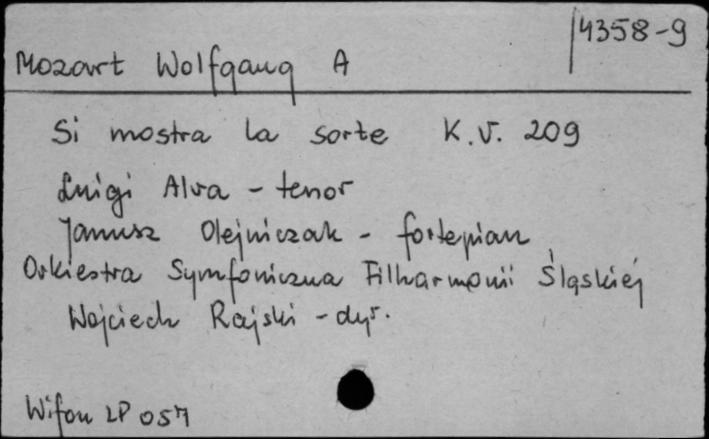 4358-9
Mozart Wolfgang A
Si mostra la sorte K.V. 209
Luigi Alva - tenor
Janusz Olejniczak - fortepian
Orkiestra Symfoniczna Filharmonii Śląskiej
Wojciech Rajski - dyr.
Wifon LP 057